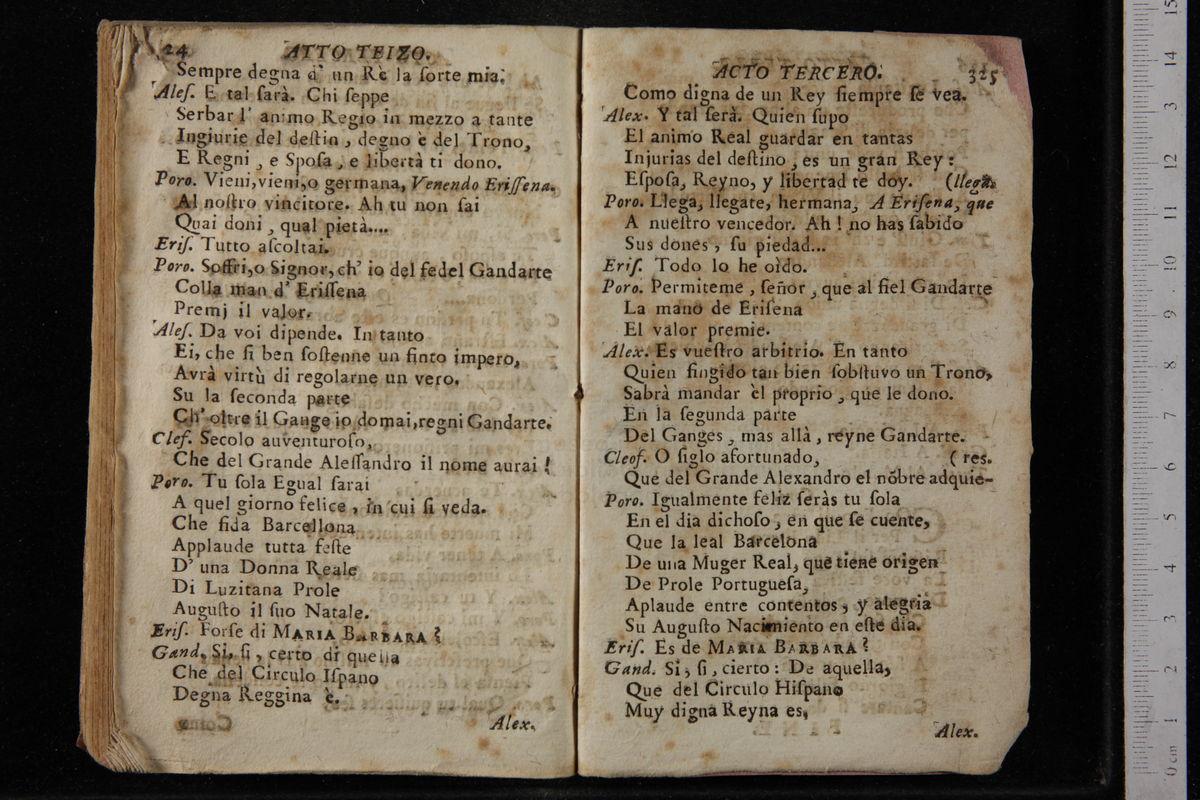 24 ATTO TEIZO.
Sempre degna d' un Rè la ſorte mia.
Aleſ. E tal ſarà. Chi ſeppe
Serbar l' animo Regio in mezzo a tante
Ingiurie del deſtin, degno è del Trono,
E Regni, e Spoſa, e libertà ti dono.
Poro. Vieni, vieni, o germana, Venendo Eriſſena.
Al noſtro vincitore. Ah tu non ſai
Quai doni, qual pietà....
Eriſ. Tutto aſcoltai.
Poro. Soffri, o Signor, ch' io del fedel Gandarte
Colla man d' Eriſſena
Premj il valor.
Aleſ. Da voi dipende. In tanto
Ei, che ſi ben ſoſtenne un finto impero,
Avrà virtù di regolarne un vero.
Su la ſeconda parte
Ch' oltre il Gange io domai, regni Gandarte.
Cleſ. Secolo auventuroſo,
Che del Grande Aleſſandro il nome aurai !
Poro. Tu ſola Egual ſarai
A quel giorno felice, in cui ſi veda.
Che fida Barcellona
Applaude tutta feſte
D' una Donna Reale
Di Luzitana Prole
Auguſto il ſuo Natale.
Eriſ. Forſe di MARIA BARBARA ?
Gand. Si, ſi, certo di quella
Che del Circulo Iſpano
Degna Reggina è.
Alex.
ACTO TERCERO. 325
Como digna de un Rey ſiempre ſe vea.
Alex. Y tal ſerà. Quien ſupo
El animo Real guardar en tantas
Injurias del deſtino, es un gran Rey :
Eſpoſa, Reyno, y libertad te doy. (llega
Poro. Llega, llegate, hermana, A Eriſena, que
A nueſtro vencedor. Ah ! no has ſabido
Sus dones, ſu piedad...
Eriſ. Todo lo he oìdo.
Poro. Permiteme, ſeñor, que al fiel Gandarte
La mano de Eriſena
El valor premie.
Alex. Es vueſtro arbitrio. En tanto
Quien fingido tan bien ſobſtuvo un Trono,
Sabrà mandar èl proprio, que le dono.
En la ſegunda parte
Del Ganges, mas allà, reyne Gandarte.
Cleof. O ſiglo afortunado, ( res.
Que del Grande Alexandro el nõbre adquie-
Poro. Igualmente feliz ſeràs tu ſola
En el dia dichoſo, en que ſe cuente,
Que la leal Barcelona
De una Muger Real, que tiene origen
De Prole Portugueſa,
Aplaude entre contentos, y alegria
Su Auguſto Nacimiento en eſte dia.
Eriſ. Es de MARIA BARBARA ?
Gand. Si, ſi, cierto : De aquella,
Que del Circulo Hiſpano
Muy digna Reyna es,
Alex.